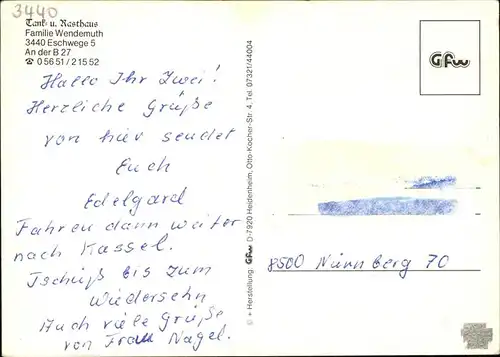 3440
Tank- u. Rasthaus
Familie Wendemuth
3440 Eschwege 5
An der B 27
☎ 0 56 51 / 2 15 52
Hallo Ihr Zwei!
Herzliche Grüße
von hier sendet
Euch
Edelgard
Fahren dann weiter
nach Kassel.
Tschüß bis zum
Wiedersehn
Auch viele Grüße
von Frau Nagel.
© + Herstellung: Gfw D-7920 Heidenheim, Otto-Kocher-Str. 4, Tel. 07321/44004
Gfw
8500 Nürnberg 70